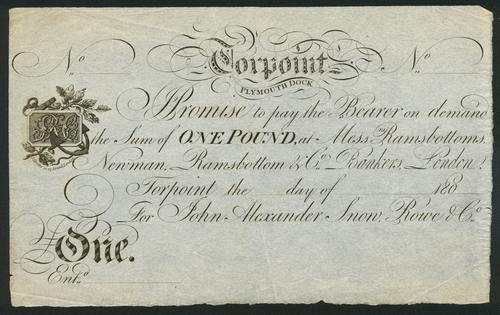 No No
Torpoint
PLYMOUTH DOCK
I Promise to pay the Bearer on demand
the Sum of ONE POUND, at Mess.rs Ramsbottoms,
Newman, Ramsbottom & Co. Bankers, London.
Torpoint the day of 180
For John Alexander Snow, Rowe & Co.
£ One.
Entd.